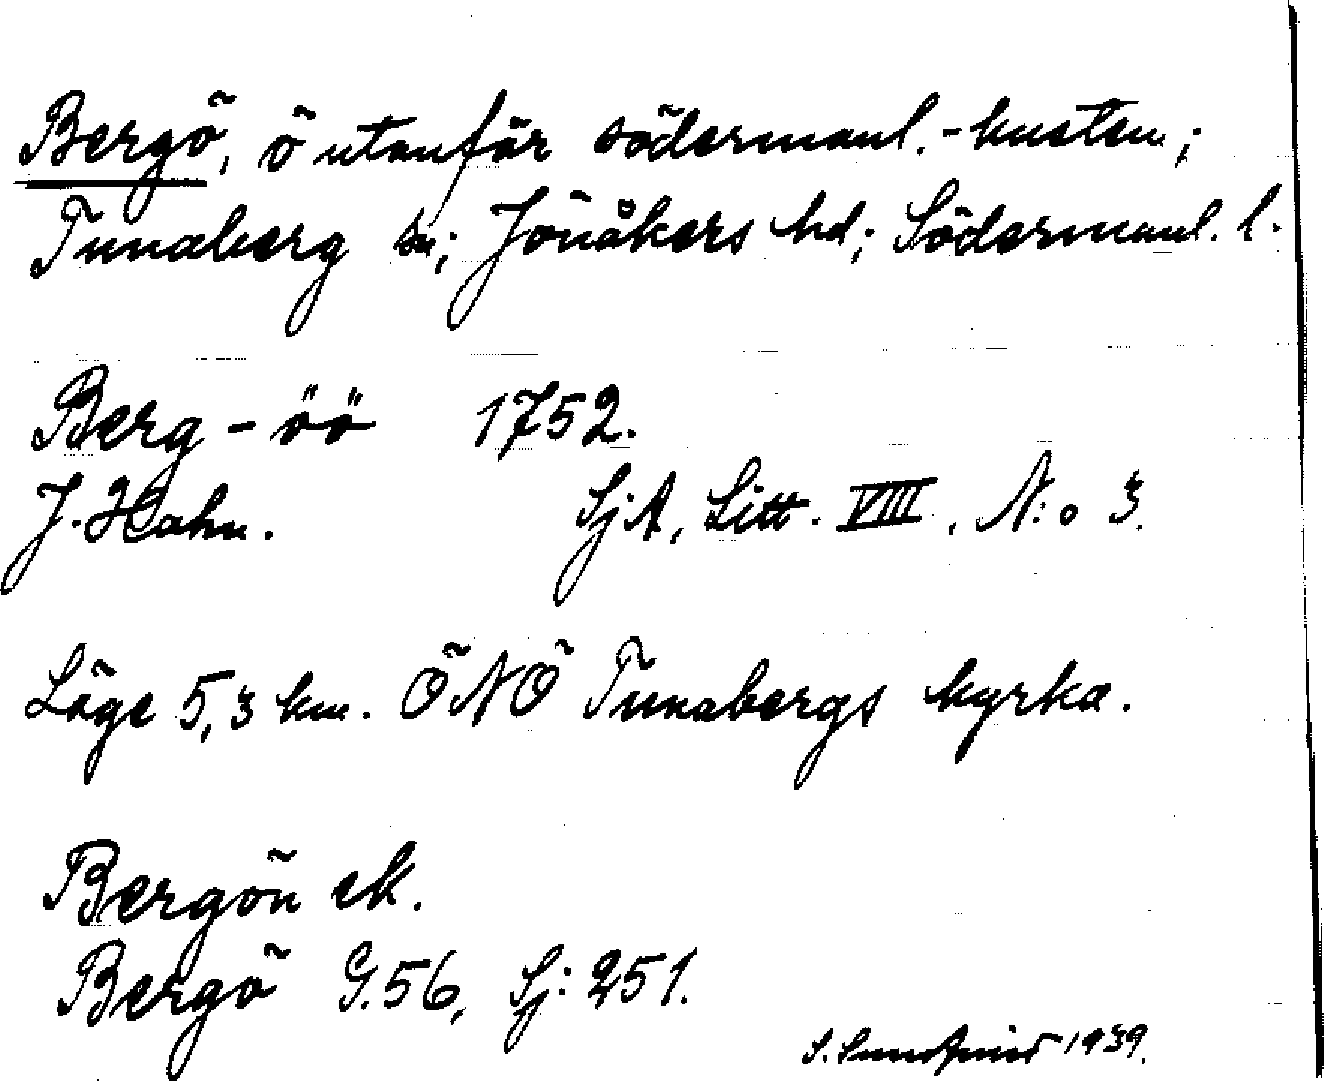 Bergö, ö utanför södermanl.-kusten;
Tunaberg sn; Jönåkers hd; Södermanl. l.
Berg-öö 1752.
J. Hahn. SjA, Litt. VIII, N:o 3.
Läge 5,3 km. ÖNÖ Tunabergs kyrka.
Bergön ek.
Bergö G.56, Sj: 251.
S. 1939.